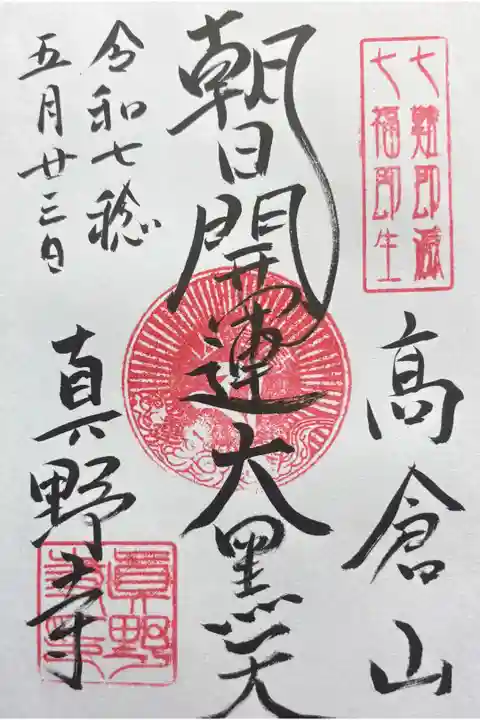 七難即滅
七福即生
高倉山
朝日開運大黒天
令和七稔
五月廿三日
真野寺
真野
寺印